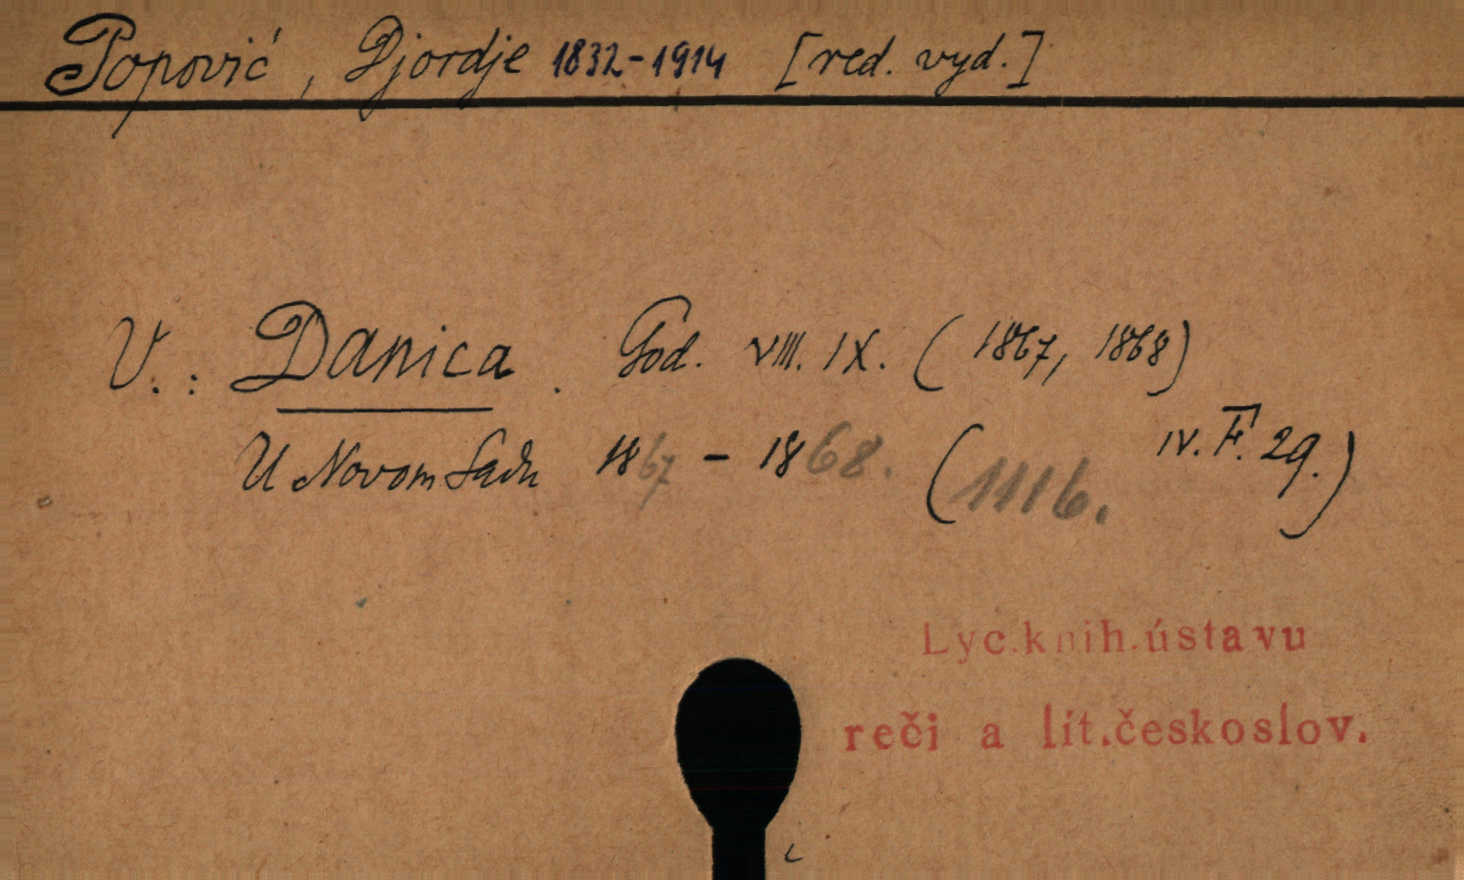 Popović, Djordje 1832-1914 [red. vyd.]
V.: Danica. God. VIII. IX. (1867, 1868)
U Novom Sadu 1867 - 1868. (1116. IV. F. 29.)
Lyc.knih.ústavu
reči a lit.českoslov.